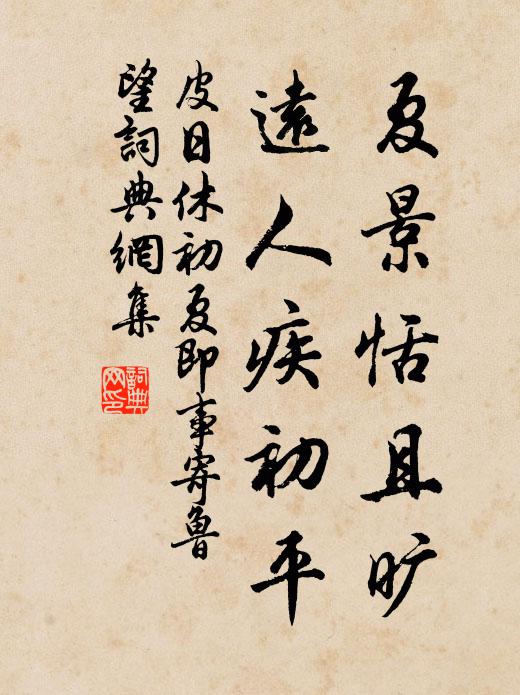 夏景恬且旷
遠人疾初平
皮日休初夏即事寄魯
望詞典網集
詞典
网印